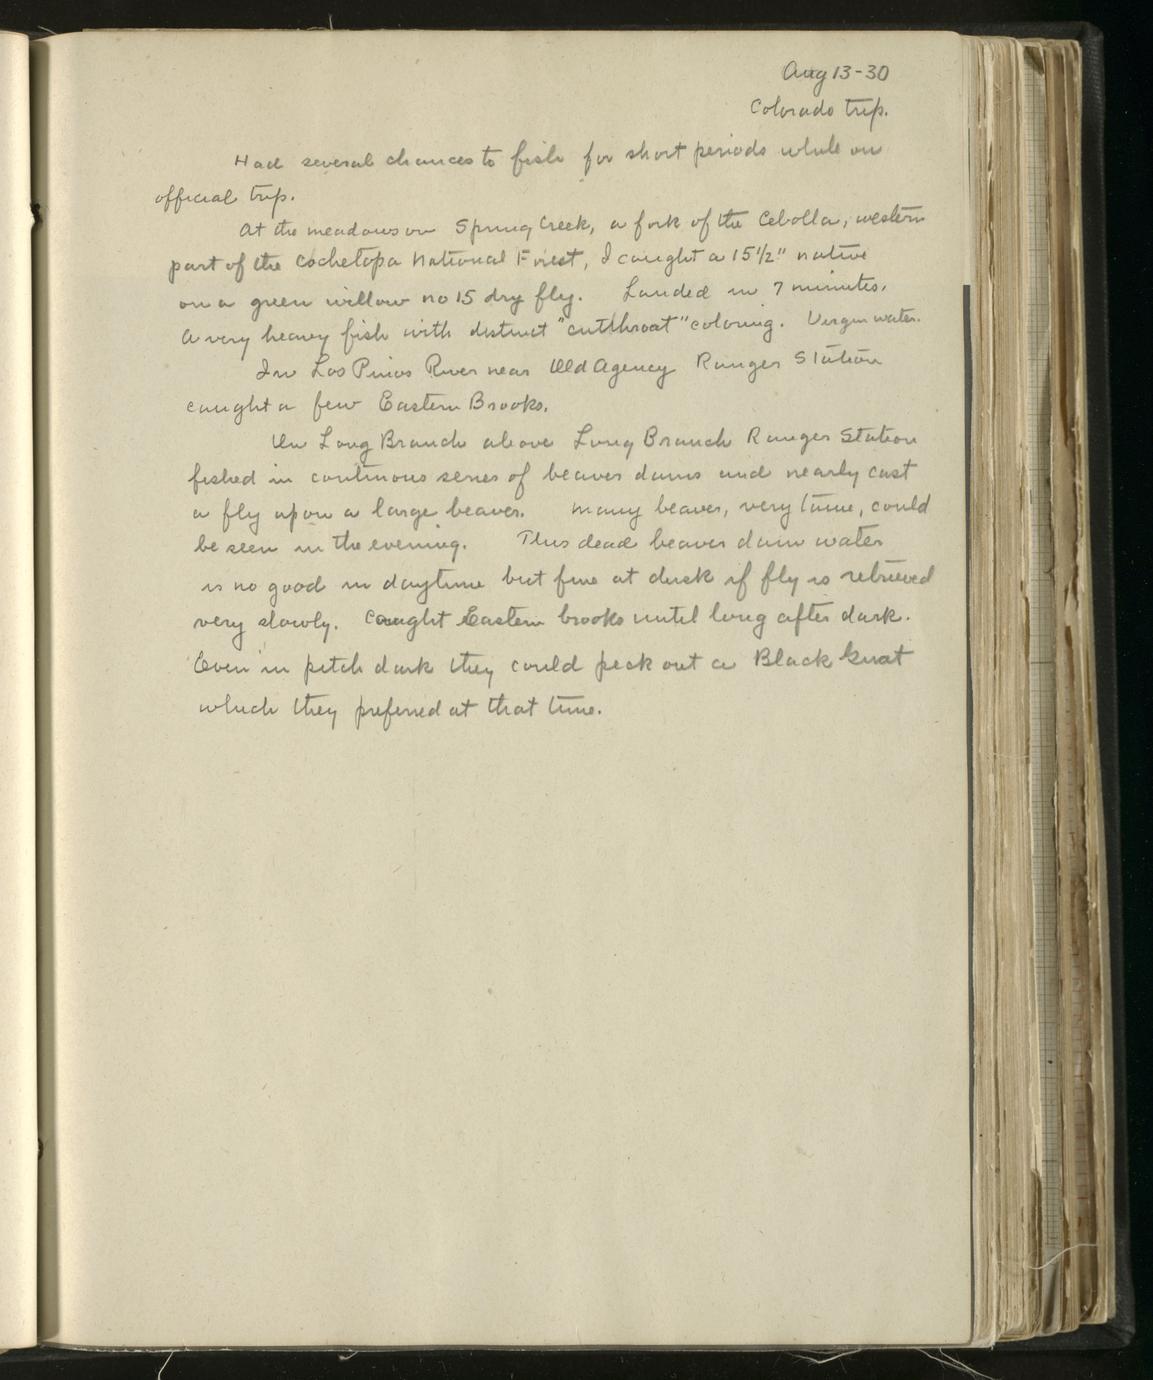 Aug 13-30
Colorado trip.
Had several chances to fish for short periods while on
official trip.
At the meadows on Spring Creek, a fork of the Cebolla, western
part of the Cochetopa National Forest, I caught a 15 1/2" native
on a green willow no 15 dry fly. Landed in 7 minutes.
A very heavy fish with distinct "cutthroat" coloring. Virgin water.
In Los Pinos River near Old Agency Ranger Station
caught a few Eastern Brooks.
On Long Branch above Long Branch Ranger Station
fished in continous series of beaver dams and nearly cast
a fly upon a large beaver. Many beaver, very tame, could
be seen in the evening. This dead beaver dam water
is no good in daytime but fine at dusk if fly is retrieved
very slowly. Caught Eastern brooks until long after dark.
Even in pitch dark they could pick out a Black Gnat
which they preferred at that time.